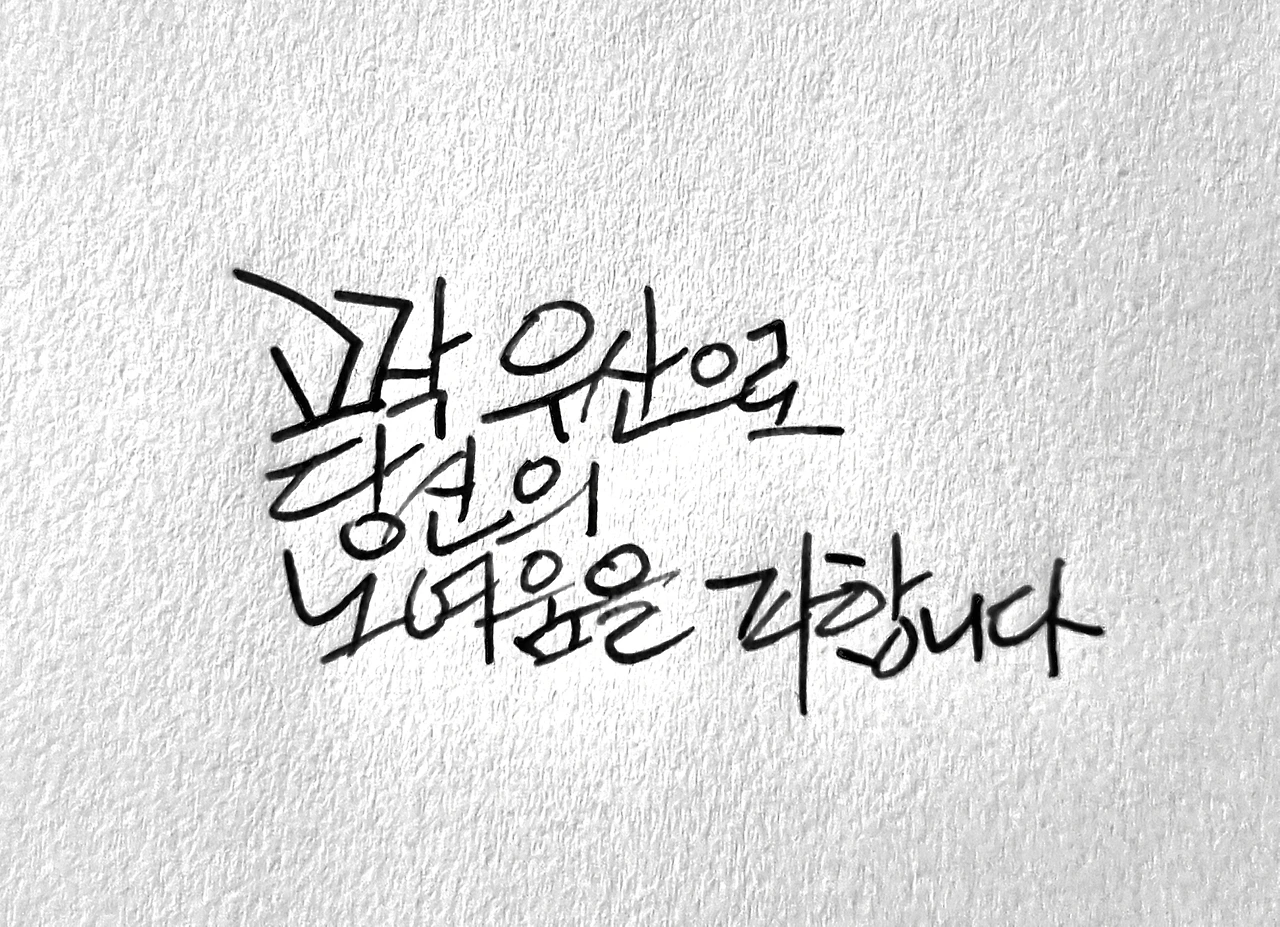 고작 우산으로
당신의
노여움을 피합니다